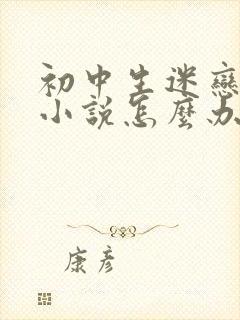 初中生迷戀
小說怎麼办
康彥